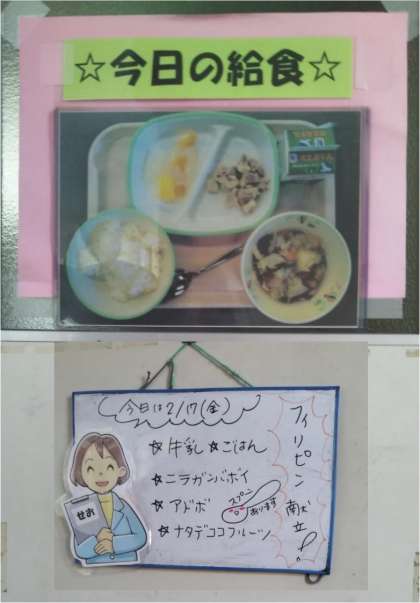 ☆今日の給食☆
今日は2/17(金)
フィリピン献立!
☆牛乳 ☆ごはん
☆ニラガンバボイ
☆アドボ
スプーン
あります
☆ナタデココフルーツ
せお